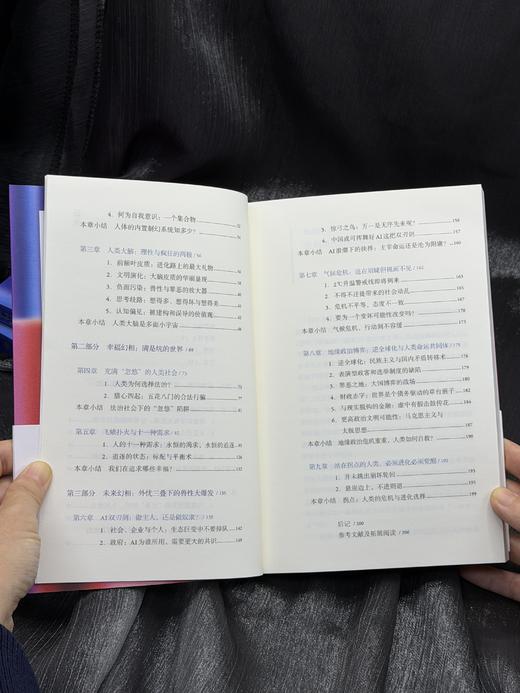 4. 何为自我意识：一个集合物
本章小结 人体的内置制幻系统知多少？ 52
第三章 人类大脑：理性与疯狂的两极 / 54
1. 前额叶皮质：进化路上的最大礼物
2. 文明演化：大脑皮质的华丽显现
3. 负面污染：兽性与罪恶的放大器
4. 思考歧路：想得多、想得坏与想得美
5. 认知偏见：被建构和误导的价值观
本章小结 人类大脑是多面小宇宙
第二部分 幸福幻相：满是坑的世界 / 69
第四章 充满“忽悠”的人类社会 / 73
1. 人类为何选择法治？
2. 猎心四起：五花八门的合法行骗
本章小结 法治社会下的“忽悠”陷阱
第五章 飞蛾扑火与十一种需求 / 92
1. 人的十一种需求：永恒的渴求，永恒的追逐
2. 追逐的状态：标配与平衡术
本章小结 我们在追求哪些幸福？
第三部分 未来幻相：外忧三叠下的兽性大爆发 / 135
第六章 AI双刃剑：做主人，还是做奴隶？ / 139
1. 社会、企业与个人：生态巨变中不要掉队 142
2. 政府：AI为谁所用，需要更大的共识 149
3. 惊弓之鸟：万一是无序先来呢？ 156
4. 中国或可挥舞好AI这把双刃剑 158
本章小结 AI浪潮下的抉择：主宰命运还是沦为附庸？ 160
第七章 气候危机，迫在眉睫但视而不见 / 162
1. 2℃升温警戒线即将到来 163
2. 不得不迁徙带来的社会动乱 165
3. 危机不平等，态度不一致 167
4. 要为一个变坏可能性改变吗？
本章小结 气候危机，行动刻不容缓
第八章 地缘政治博弈：逆全球化与人类命运共同体 / 175
1. 逆全球化：民族主义与国内矛盾转移术
2. 表演型政客和选举制度的缺陷
3. 罪恶之地：大国博弈的战场
4. 财政赤字：世界是个债务驱动的草台班子
5. 与现实脱钩的金融：虚中有假击鼓传花
6. 更高政治文明可能性：马克思主义与
大候思想
本章小结 地缘政治危机重重，人类如何自救？
第九章 站在拐点的人类，必须进化必须觉醒
1. 并未跳出崩坏轮回
2. 悬崖边上，不进则退
本章小结 拐点：人类的危机与进化选择 199
后记 / 200
参考文献及拓展阅读 / 206